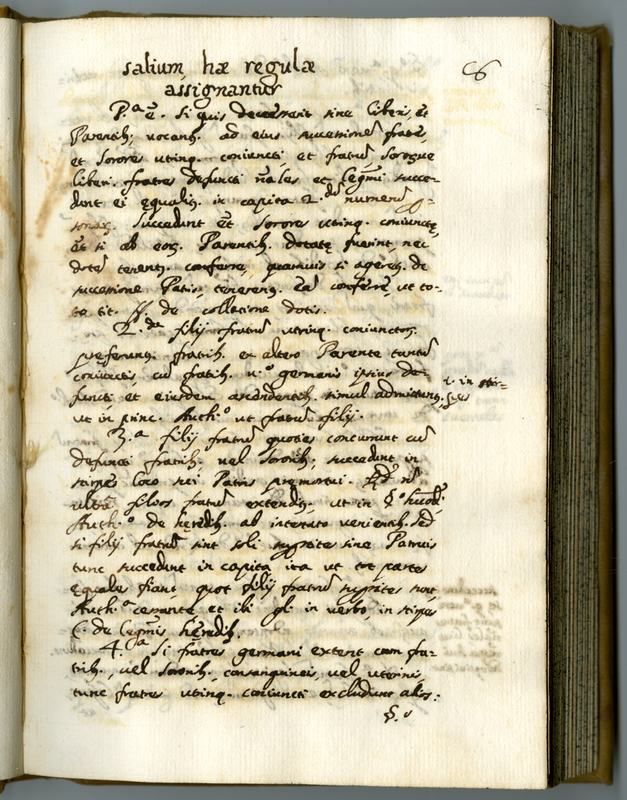 salium, hæ regulæ
assignantur
P.ª ẽ. Si quis decesserit sine liberis, et
Parentib; vocant. ad eius successionẽ fratres,
et Sorores utinq. coniuncti, et fratrũ, Soroque
liberi. fratres defuncti ñales et legmi succe-
dunt ei equalit. in capita
Succedunt et Sorores utinq. coniunctę,
et si ab eor. Parentib. dotatę fuerint nec
dotẽ tenent. conferre, quamuis si ageret. de
successione Patris, tenerent. eã conferre, ut to-
to tit. ff. de collatione dotis.
2.da filij fratrũ utinq. coniunctor.
pręferunt. fratrib. ex altero Parente tantũ
coniunctis, cũ fratib. v.º germanis ipsius de-
functi et eiusdem ascendentib. simul admittunt.
ut in princ. Auth.º ut fratrũ filij.
3.ª filij fratrũ quoties concurrunt cũ
defuncti fratrib. vel Sororib; succedunt in
stirpes loco sui Patris premortui.
ultra filios fratrũ extendit, ut in §.º
Auth.º de hęredib. ab intestato venientib. Sed
si filij fratrũ sint soli supstites sine Patruis
tunc succedunt in capita ita ut tot partes
ęquale fiant, quot filij fratrũ supstites sunt,
Auth.ª cessante et ibi gl. in verbo, in stirpes
C. de legmis hęredib.
4.ª Si fratres germani extent cum fra-
trib., vel Sororib., consanguineis, vel uterinis,
tunc fratres utinq. coniuncti excludunt alios: